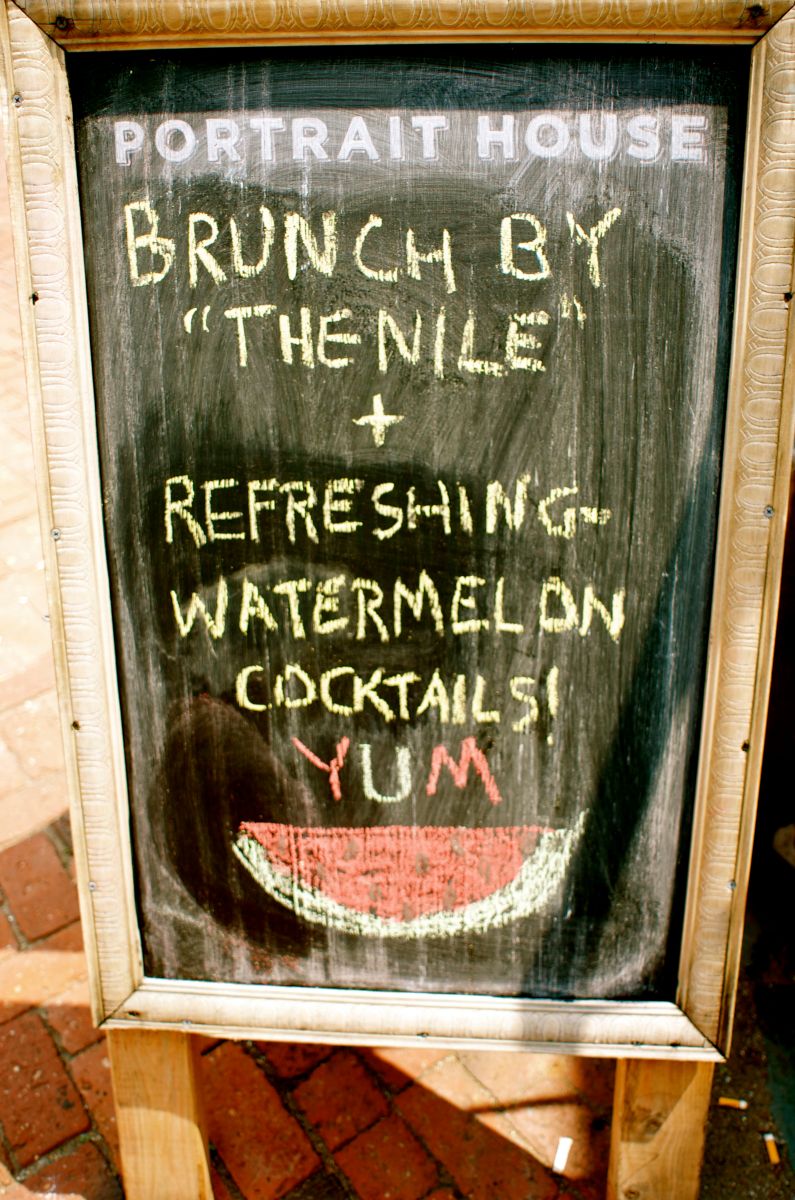 PORTRAIT HOUSE
BRUNCH BY
"THE NILE"
+
REFRESHING
WATERMELON
COCKTAILS!
YUM